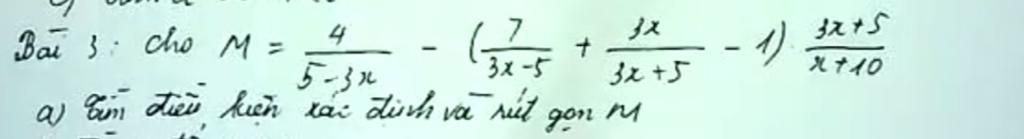 Bài 3: Cho M = 4/(5-3x) - (7/(3x-5) + 3x/(3x+5) - 1) . (3x+5)/(x+10)
a) Tìm điều kiện xác định và rút gọn M